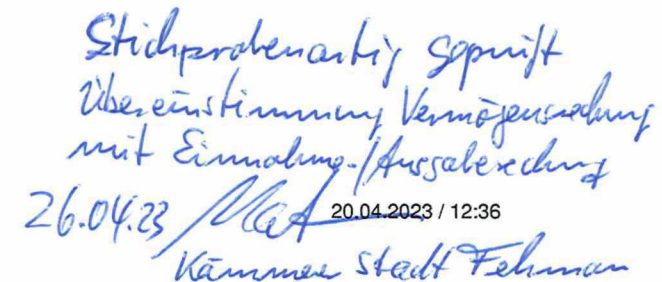 Stichprobenartig geprüft
Übereinstimmung Vermögensrechnung
mit Einnahme-/Ausgaberechnung
26.04.23 20.04.2023 / 12:36
Kämmerer Stadt Fehmarn